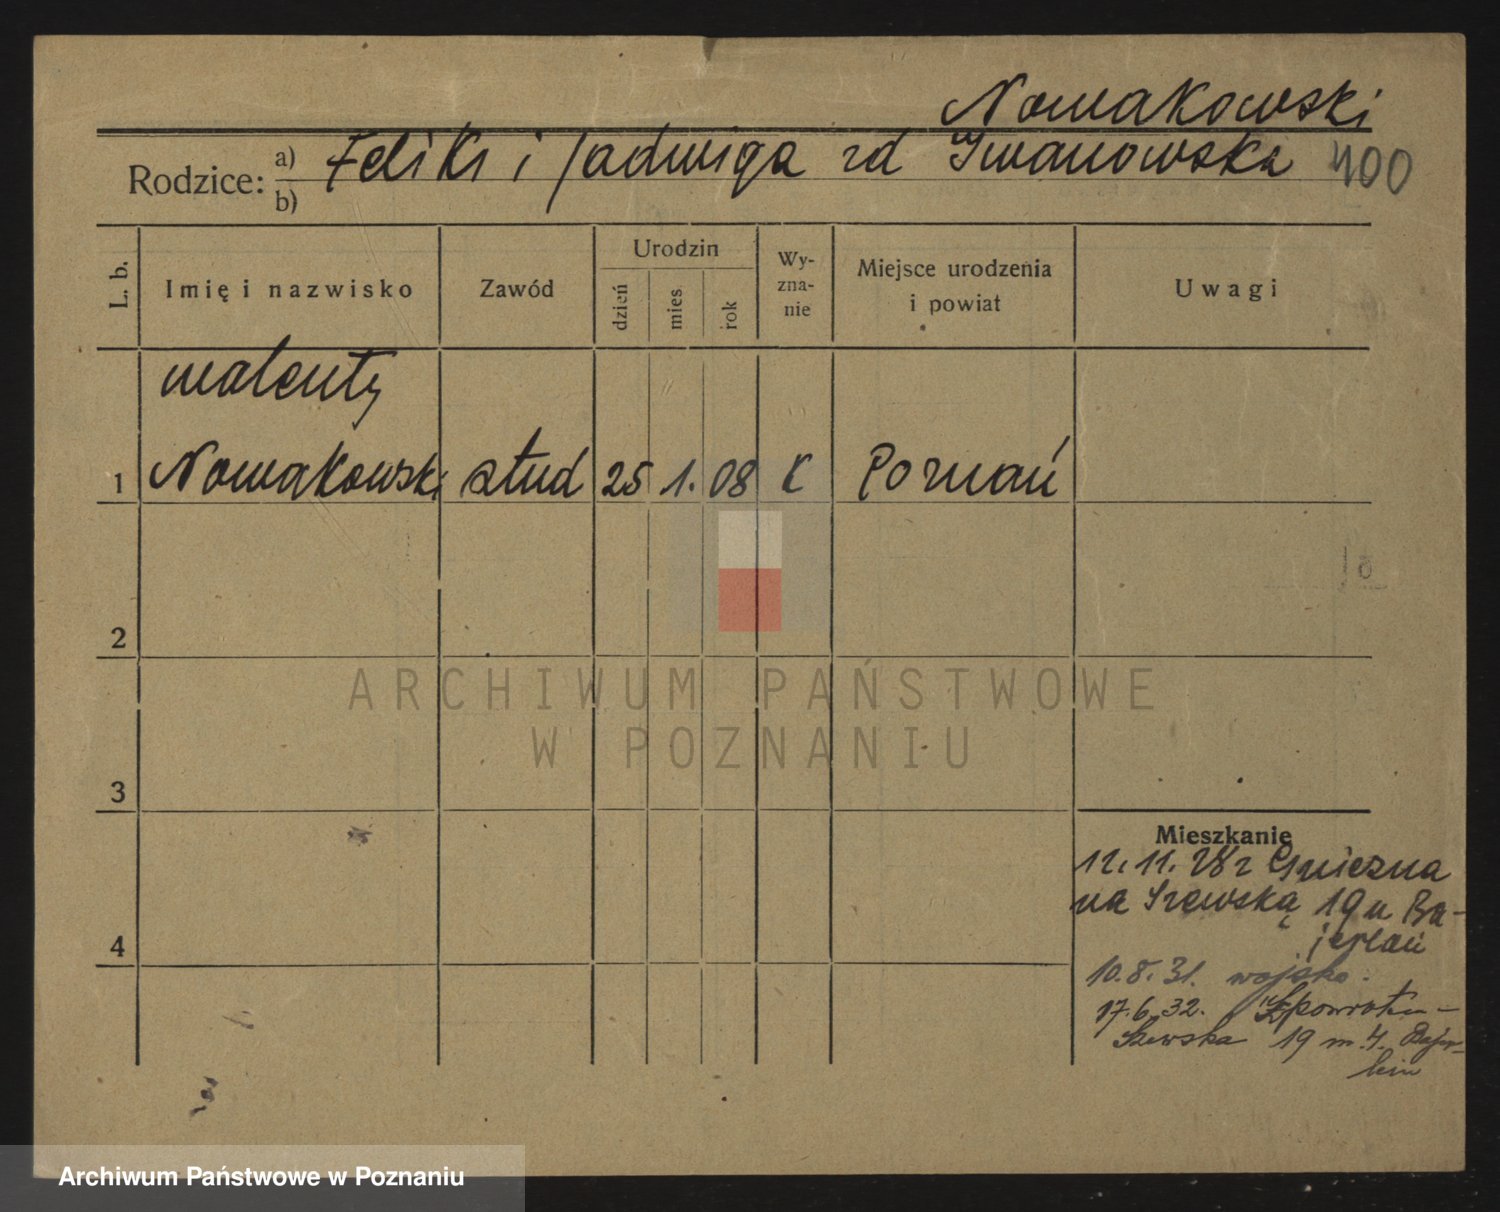 Nowakowski
Rodzice: a) Feliks i Jadwiga zd Iwanowska 400
b)
L. b. Imię i nazwisko Zawód Urodzin dzień mies rok Wy-zna-nie Miejsce urodzenia i powiat Uwagi
walenty
1 Nowakowski stud 25 1. 08 K Poznań
2
3
4
ARCHIWUM PAŃSTWOWE
W POZNANIU
Mieszkanie
12. 11. 28 z Gniezna
na Szewską 19 u Ba-
jerlain
10.8.31. wojsko.
17.6.32. Z powrotem -
Szewska 19 m. 4. Bajer-
lein
Archiwum Państwowe w Poznaniu